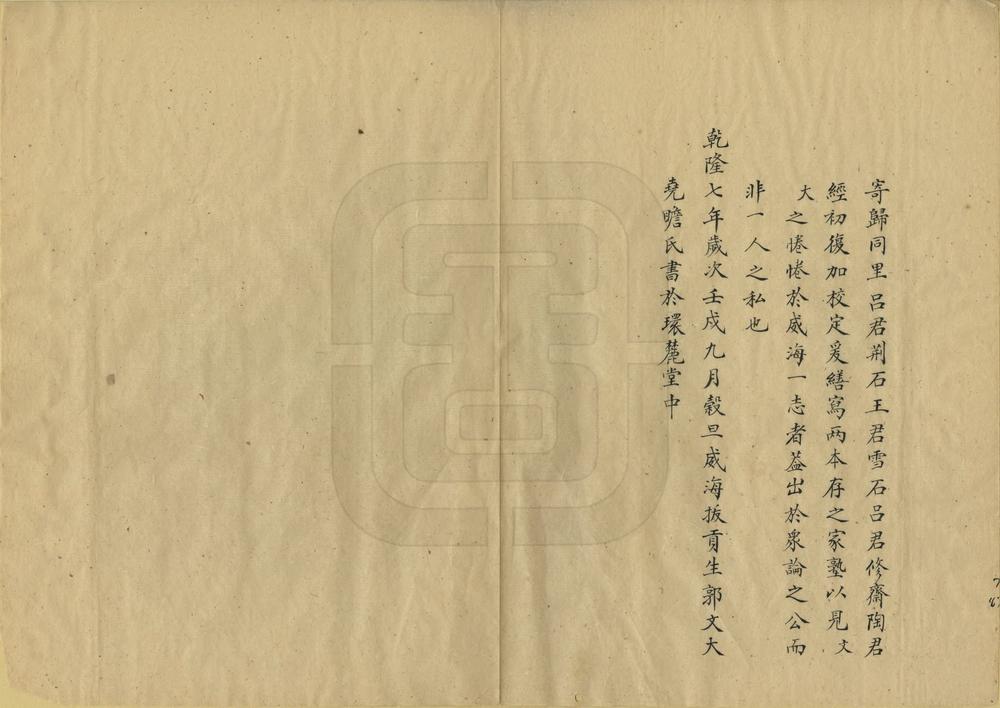 寄歸同里呂君荆石王君雪石呂君修齋陶君
經初復加校定爰繕寫兩本存之家塾以見文
大之惓惓於威海一志者葢出於衆論之公而
非一人之私也
乾隆七年歲次壬戍九月穀旦威海拔貢生郭文大
堯瞻氏書於環麓堂中